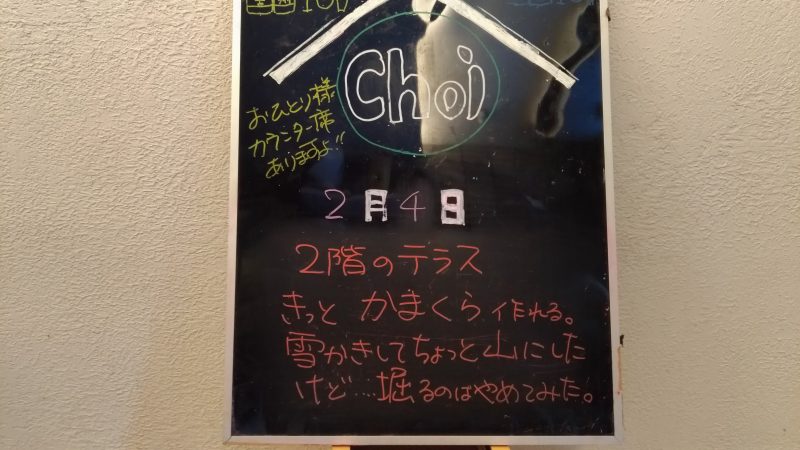 Choi
おひとり様
カウンター席
ありますよ!!
2月4日
2階のテラス
きっと かまくら 作れる。
雪かきしてちょっと山にした
けど…堀るのはやめてみた。